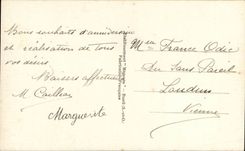 Bons souhaits d'anniversaire
et réalisation de tous
vos désirs
Baisers affectueux
M Cailleau
Marguerite
Melle France Odic
Au Sans Pareil
Loudun
Vienne